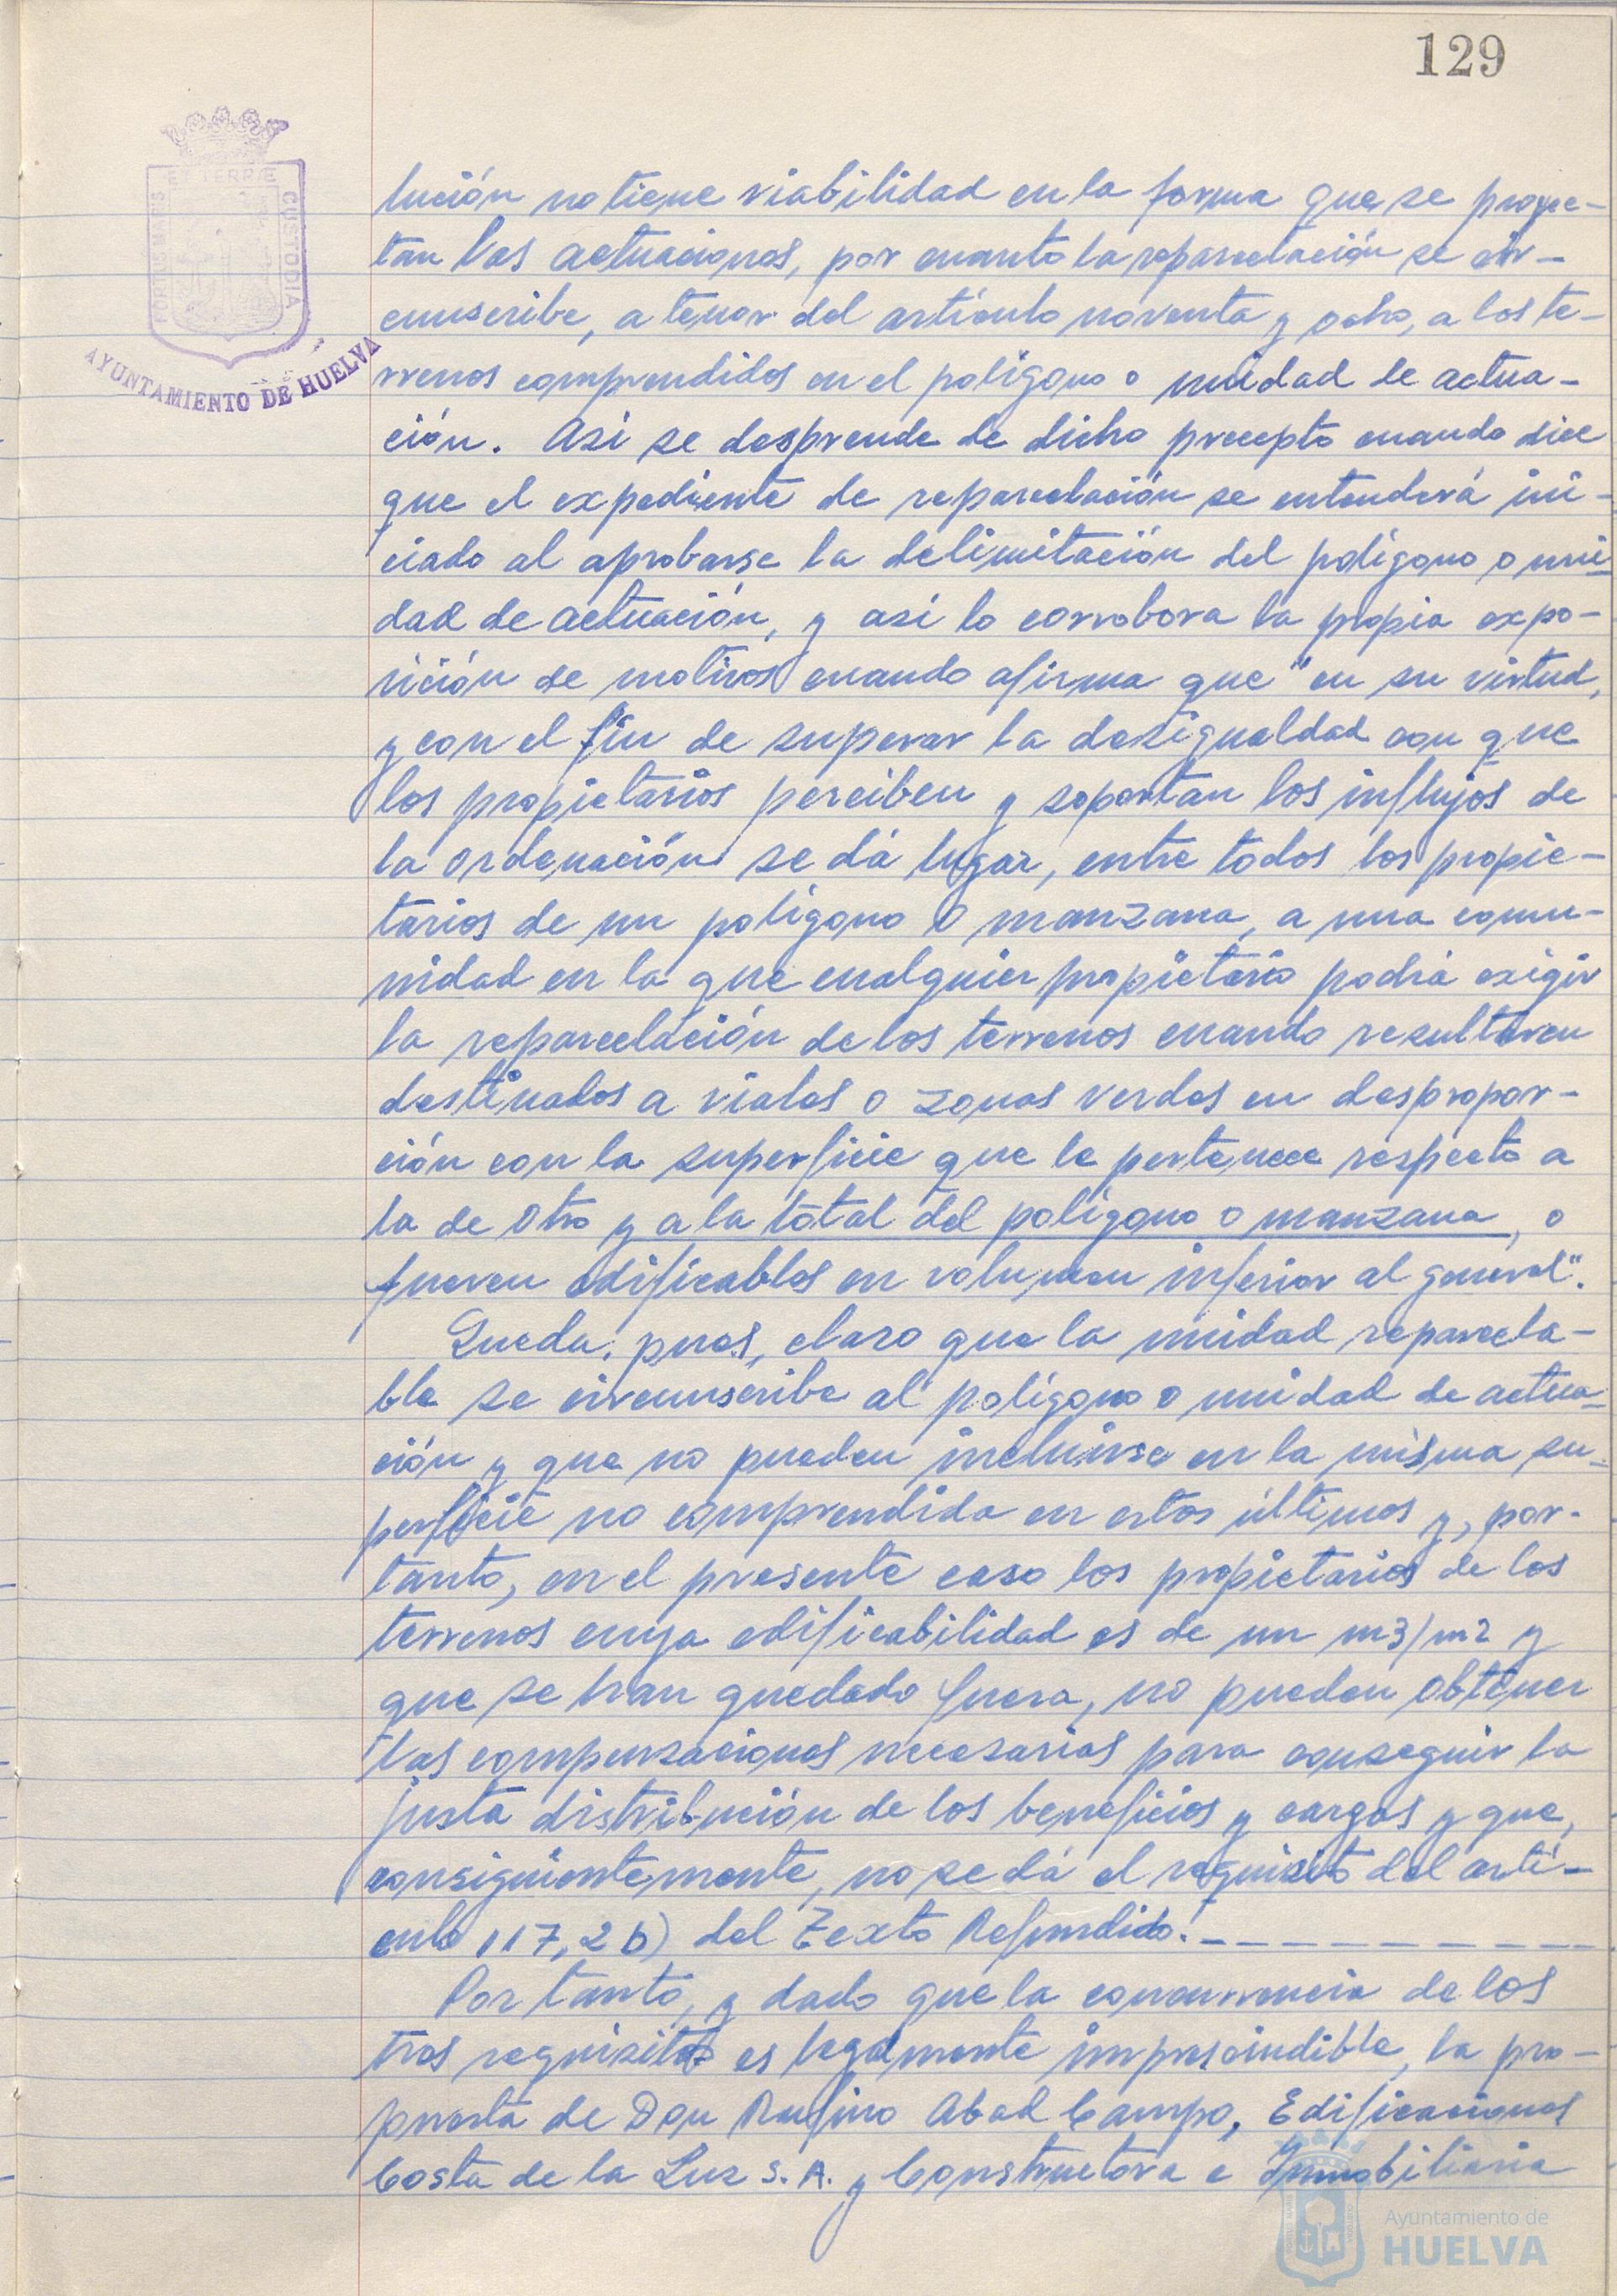 129
PORTUS MARIS
ET TERRÆ
CUSTODIA
AYUNTAMIENTO DE HUELVA
lución no tiene viabilidad en la forma que se proyec-
tan las actuaciones, por cuanto la reparcelación se cir-
cunscribe, a tenor del artículo noventa y ocho, a los te-
rrenos comprendidos en el polígono o unidad de actua-
ción. Así se desprende de dicho precepto cuando dice
que el expediente de reparcelación se entenderá ini-
ciado al aprobarse la delimitación del polígono o uni-
dad de actuación, y así lo corrobora la propia expo-
sición de motivos cuando afirma que "en su virtud,
y con el fin de superar la desigualdad con que
los propietarios perciben y soportan los influjos de
la ordenación se dá lugar, entre todos los propie-
tarios de un polígono o manzana, a una comu-
nidad en la que cualquier propietario podrá exigir
la reparcelación de los terrenos cuando resultaren
destinados a viales o zonas verdes en despropor-
ción con la superficie que le pertenece respecto a
la de otro y a la total del polígono o manzana, o
fueren edificables en volumen inferior al general".
Queda, pues, claro que la unidad reparcela-
ble se circunscribe al polígono o unidad de actua-
ción y que no pueden incluirse en la misma su-
perficie no comprendida en estos últimos y, por-
tanto, en el presente caso los propietarios de los
terrenos cuya edificabilidad es de un m3/m2 y
que se han quedado fuera, no pueden obtener
las compensaciones necesarias para conseguir la
justa distribución de los beneficios y cargas y que,
consiguientemente, no se dá el requisito del artí-
culo 117, 2 b) del Texto Refundido.- - - - - - - - -
Por tanto, y dado que la concurrencia de los
tres requisitos es legalmente imprescindible, la pro-
puesta de Don Rufino Abad Campo, Edificaciones
Costa de la Luz S. A. y Constructora e Inmobiliaria
Ayuntamiento de
HUELVA